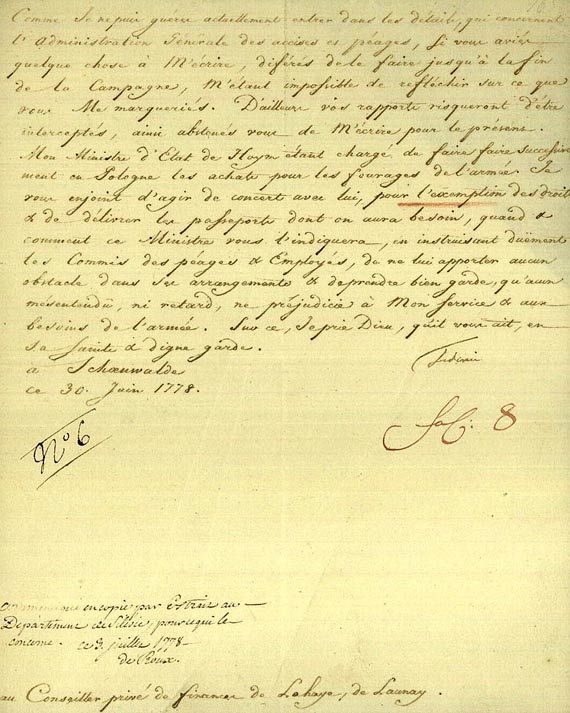 Comme Je ne puis guére actuellement entrer dans les détails, qui concernent
l'administration Générale des accises et péages, Si vous aviés
quelque chose à M'écrire, diférés de le faire jusqu'à la fin
de la Campagne, M'étant impossible de refléchir sur ce que
vous Me marqueriés. D'ailleurs vos rapports risqueront d'être
interceptés, ainsi abstenés vous de M'écrire pour le présent.
Mon Ministre d'Etat de Hoym étant chargé de faire faire successive
ment en Pologne les achats pour les fourages de l'armée. Je
vous enjoint d'agir de concert avec lui, pour l'exemption des droits
& de délivrer les passeports dont on aura besoin, quand &
comment ce Ministre vous l'indiquera, en instruisant duëment
les Commis des péages & Employés, de ne lui apporter aucun
obstacle dans ses arrangements & de prendre bien garde, qu'aucun
mésentendu, ni retard, ne préjudicie à Mon service & aux
besoins de l'armée. Sur ce, Je prie Dieu, qu'il vous ait, en
sa sainte & digne garde.
à Schoenwalde
ce 30. Juin 1778.
Federic
N° 6
8
en copie par Extrait au
Departement de Silésie, pour ce qui le
concerne. ce 9. juillet 1778
au Conseiller privé de finances de Lahaye, de Launay.